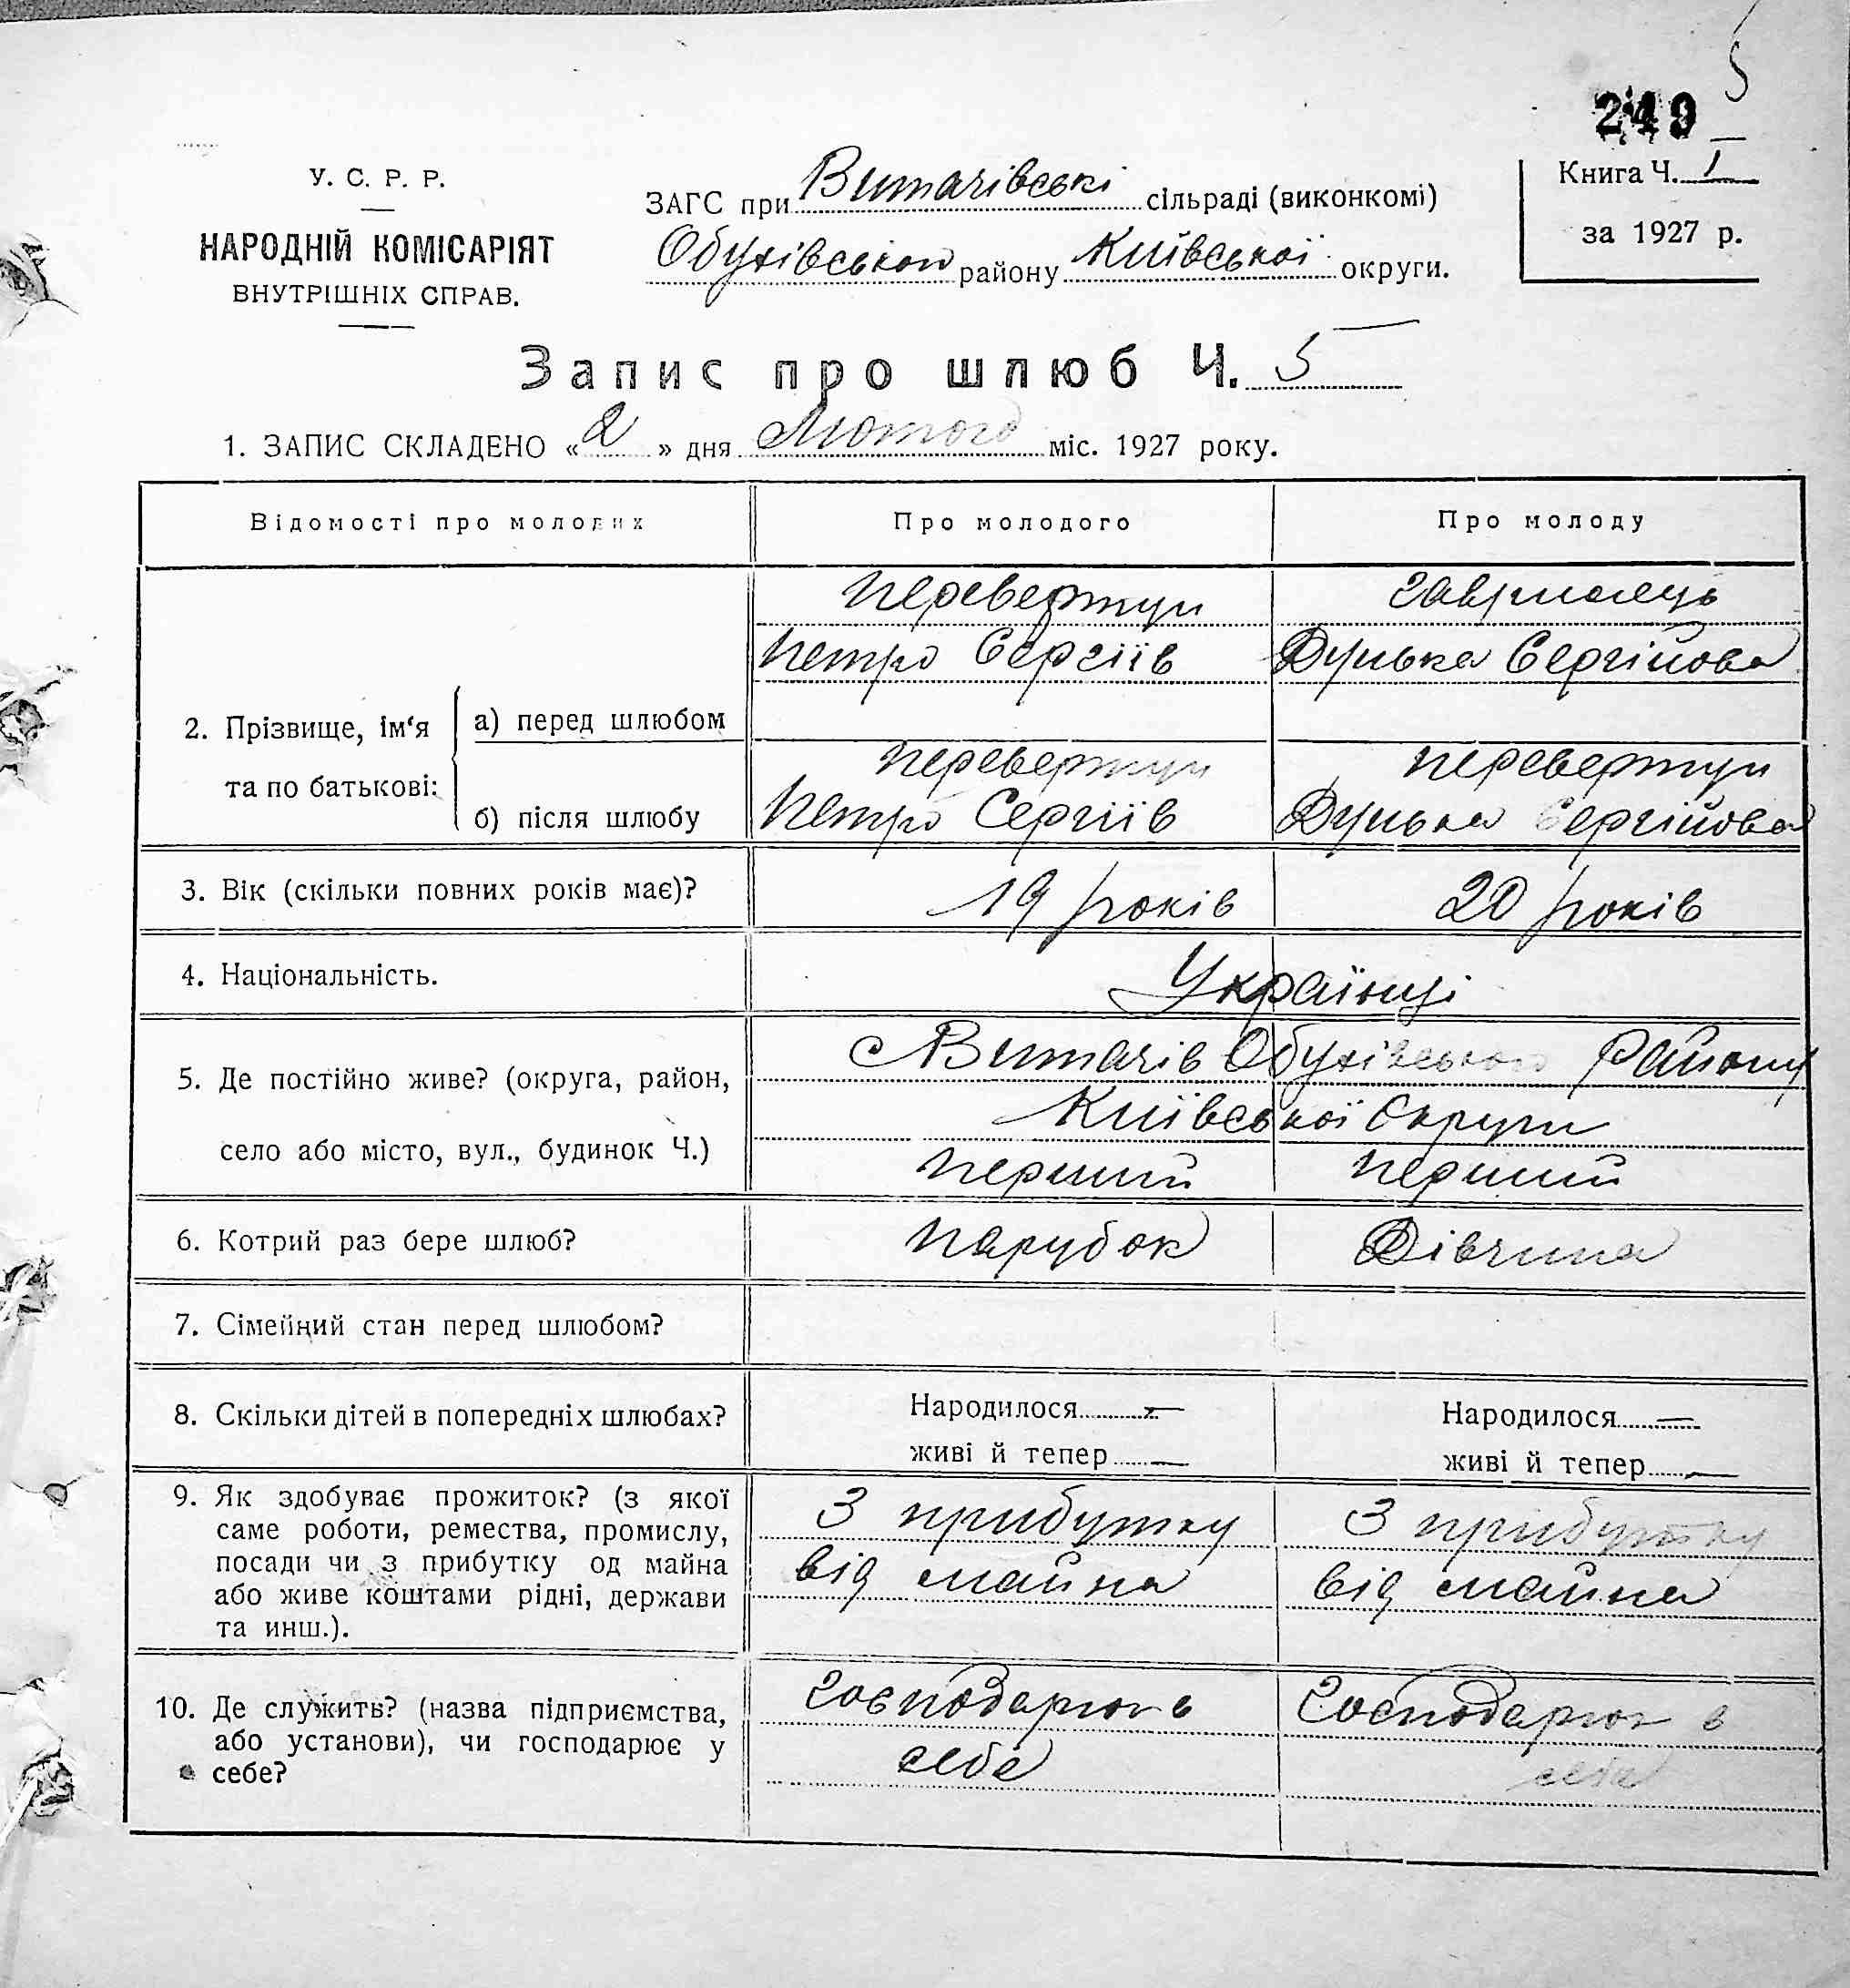 5
249
У. С. Р. Р.
НАРОДНІЙ КОМІСАРІЯТ
ВНУТРІШНІХ СПРАВ.
ЗАГС при Витачівські сільраді (виконкомі)
Обухівського району Київської округи.
Книга Ч. 1
за 1927 р.
Запис про шлюб Ч. 5
1. ЗАПИС СКЛАДЕНО «2» дня Лютого міс. 1927 року.
Відомості про молодих Про молодого Про молоду
2. Прізвище, ім'я та по батькові:
а) перед шлюбом
Перевертун
Петро Сергіїв
Гаврилець
Дунька Сергійова
б) після шлюбу
Перевертун
Петро Сергіїв
Перевертун
Дунька Сергійова
3. Вік (скільки повних років має)? 19 років 20 років
4. Національність. Українці
5. Де постійно живе? (округа, район,
село або місто, вул., будинок Ч.)
с Витачів Обухівського Району
Київської Округи
Перший Перший
6. Котрий раз бере шлюб? Парубок Дівчина
7. Сімейний стан перед шлюбом?
8. Скільки дітей в попередніх шлюбах?
Народилося —
живі й тепер —
Народилося —
живі й тепер —
9. Як здобуває прожиток? (з якої
саме роботи, ремества, промислу,
посади чи з прибутку од майна
або живе коштами рідні, держави
та инш.).
З прибутку
від майна
З прибутку
від майна
10. Де служить? (назва підприємства,
або установи), чи господарює у
себе?
Господарює в
себе
Господарює в
себе